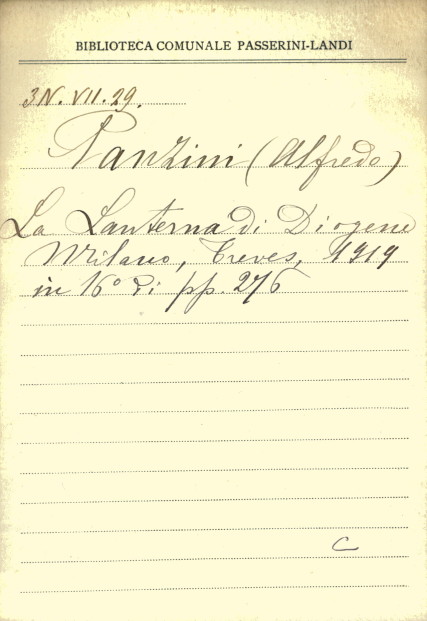 BIBLIOTECA COMUNALE PASSERINI-LANDI
3N. VII. 29.
Panzini (Alfredo)
La Lanterna di Diogene
Milano, Treves, 1919
in 16° di pp. 276
C